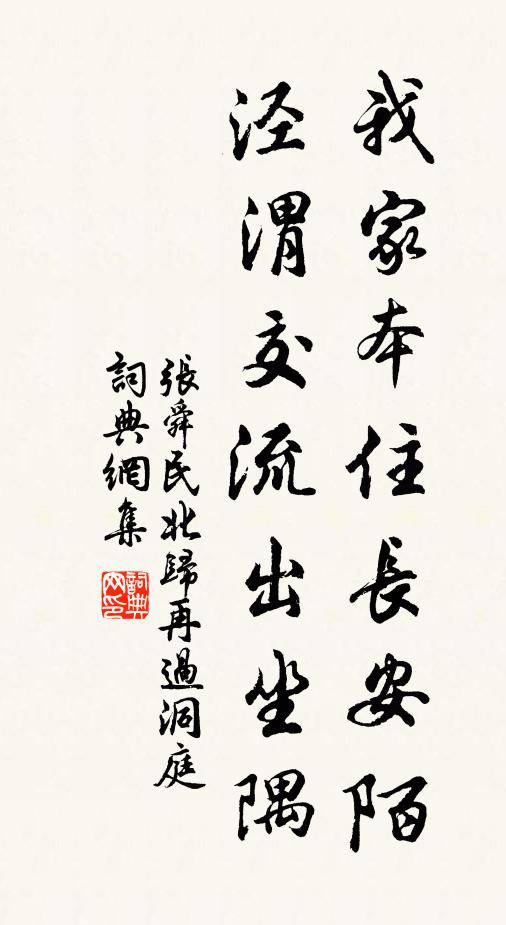 我家本住長安陌
涇渭交流出坐隅
張舜民北歸再過洞庭
詞典網集
詞典網印